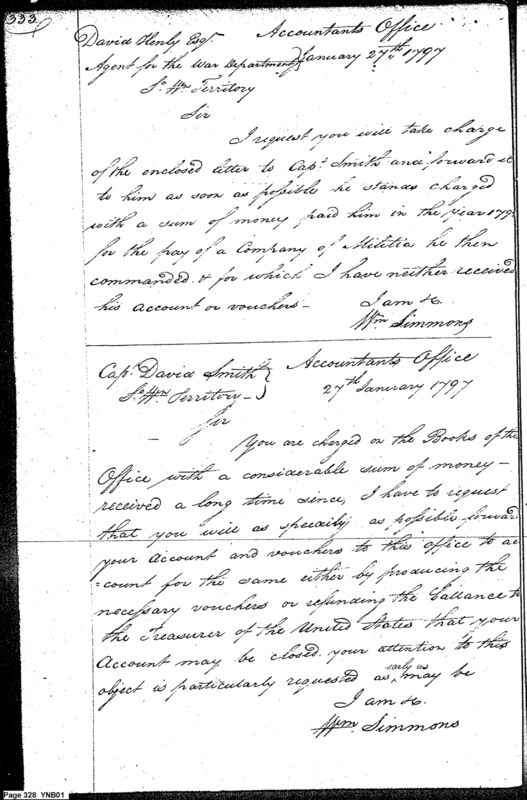 333
Accountants Office
David Henly Esqr
Agent for the War Department } January 27th 1797
So. Wn. Territory
Sir
I request you will take charge
of the enclosed letter to Capt. Smith and forward it
to him as soon as possible he stands charged
with a sum of money paid him in the year 179
for the pay of a Company of Militia he then
commanded & for which I have neither received
his account or vouchers —
I am &.
Wm Simmons
Capt. David Smith } Accountants Office
So. Wn. Territory — } 27th January 1797
Sir
— You are charged on the Books of this
Office with a considerable sum of money —
received a long time since, I have to request
that you will as speedily as possible forward
your Account and vouchers to this office to ac
=count for the same either by producing the
necessary vouchers or refunding the ballance to
the Treasurer of the United States that your
Account may be closed. your attention to this
object is particularly requested as early as may be
I am &.
Wm Simmons
Page 328 YNB01